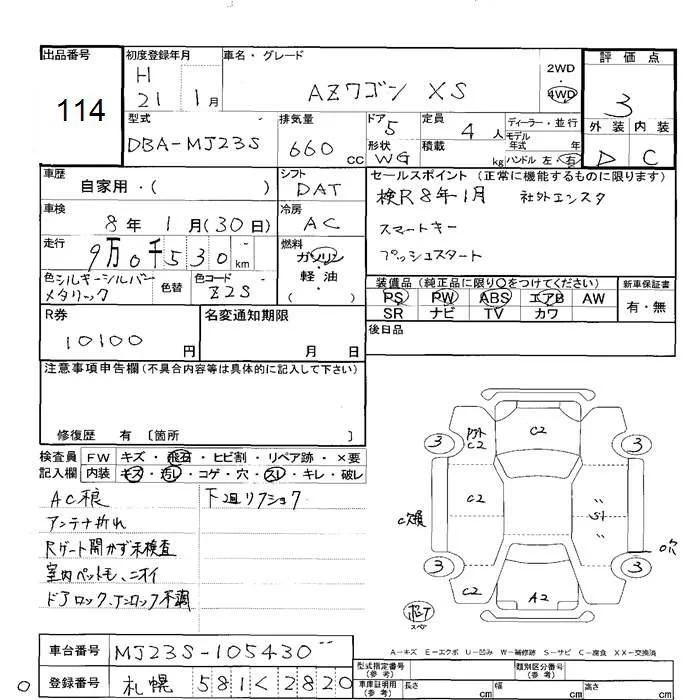 出品番号
114
初度登録年月
H
21 1月
車名・グレード
AZワゴン XS
2WD
・
4WD
評価点
3
外装 内装
D C
型式
DBA-MJ23S
排気量
660 cc
ドア 5
形状 WG
定員 4 人
積載 kg
ディーラー・並行
モデル年式 年
ハンドル 左・右
車歴
自家用・( )
シフト
DAT
セールスポイント (正常に機能するものに限ります)
検R8年1月 社外エンスタ
スマートキー
プッシュスタート
車検
8年 1月(30日)
冷房
AC
走行
9万0千530km
燃料
ガソリン
・
軽・油
( )
色 シルキーシルバーメタリック
色替
色コード
Z2S
装備品 (純正品に限り○をつけてください)
PS PW ABS エアB AW
SR ナビ TV カワ
新車保証書
有・無
R券
10100 円
名変通知期限
月 日
後日品
注意事項申告欄 (不具合内容等は具体的に記入して下さい)
修復歴 有 〔箇所 〕
検査員記入欄
FW キズ・飛石・ヒビ割・リペア跡・×要
内装 キズ・汚レ・コゲ・穴・スレ・キレ・破レ
AC根 下廻リフショク
アンテナ折れ
Rゲート開かず未検査
室内ペットモ、ニオイ
ドアロック、アンロック不調
3
C2
C2
3
C2
C2
S1
C欠損
穴
3
C2
A2
3
A-キズ E-エクボ U-凹み W-補修跡 S-サビ C-腐食 XX-交換済
車台番号
MJ23S-105430
登録番号
札幌 581く2820
型式指定番号(参考)
類別区分番号(参考)
車庫証明用(参考)
長さ cm
幅 cm
高さ cm